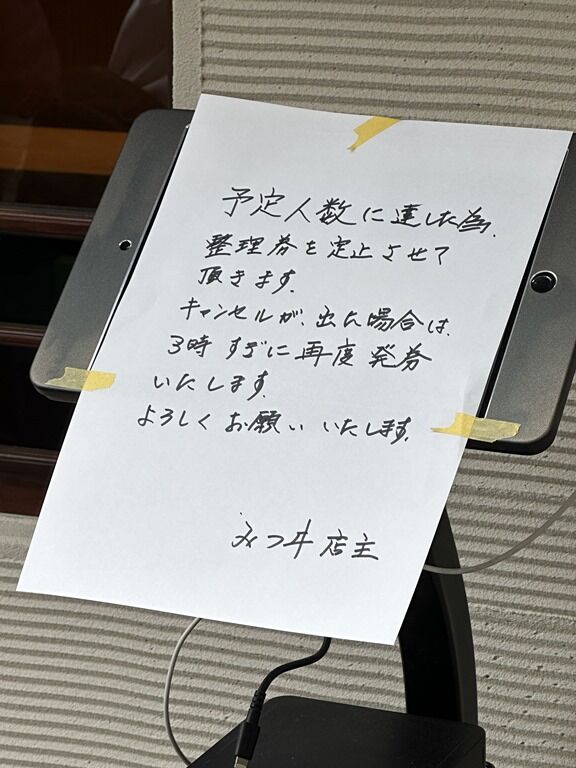 予定人数に達した為、
整理券を定止させて
頂きます。
キャンセルが、出た場合は、
3時すぎに再度発券
いたします。
よろしくお願いいたします。
みつ牛店主